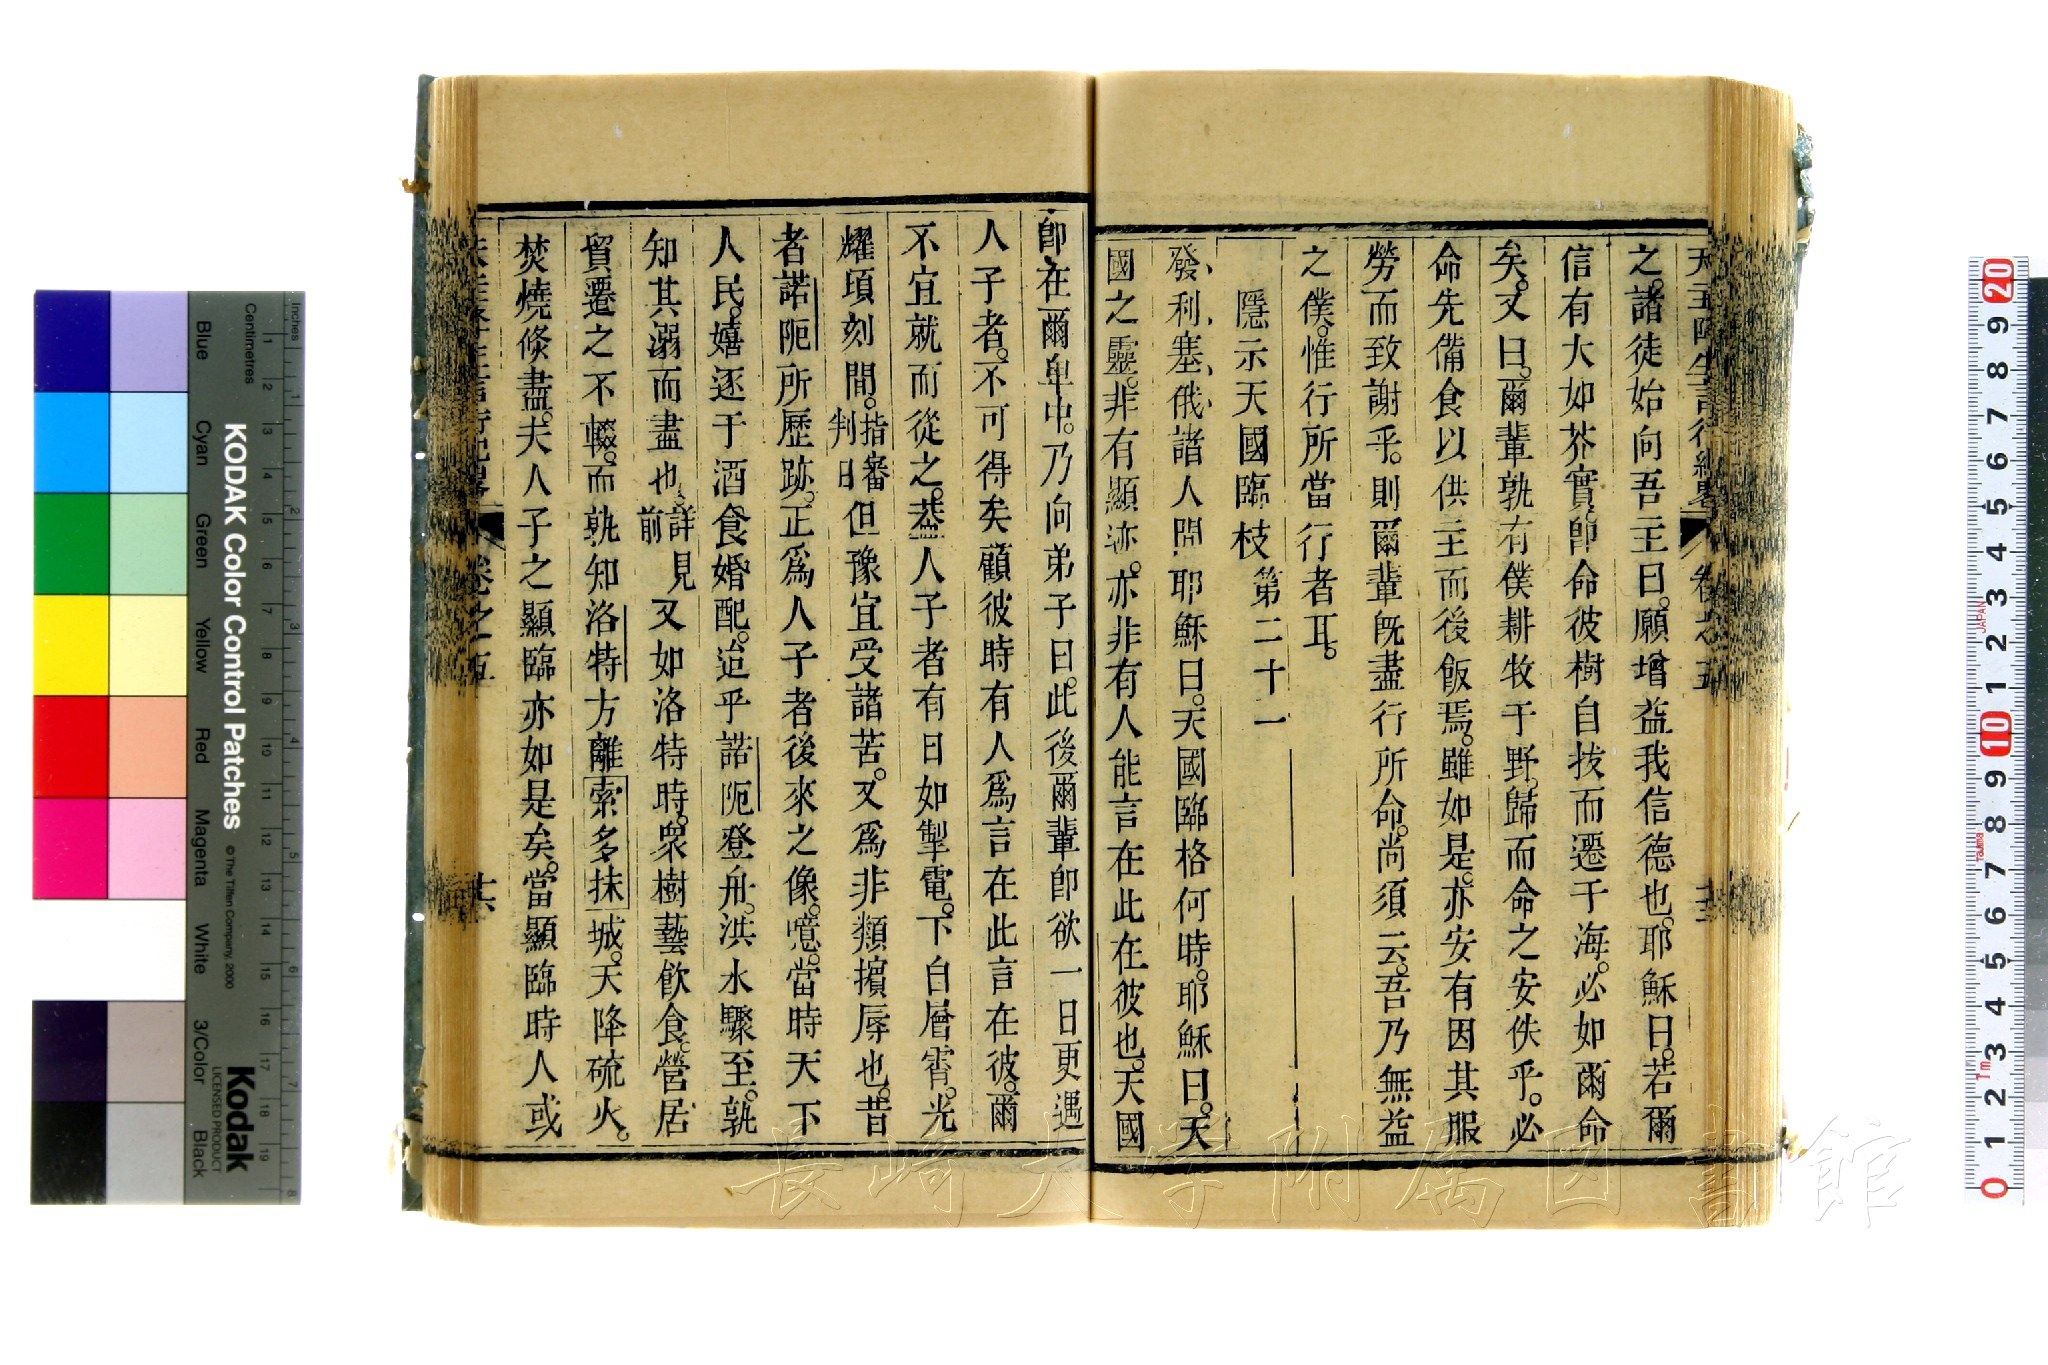 天主降生言行紀畧 卷之五 十三
之諸徒始向吾主曰。願增益我信德也。耶穌曰。若爾
信有大如芥實。卽命彼樹自拔而遷于海。必如爾命
矣。又曰。爾輩孰有僕耕牧于野。歸而命之安佚乎。必
命先備食以供主而後飯焉。雖如是。亦安有因其服
勞而致謝乎。則爾輩旣盡行所命。尚須云。吾乃無益
之僕。惟行所當行者耳。
隱示天國臨枝 第二十一
發利塞俄諸人問耶穌曰。天國臨格何時。耶穌曰。天
國之靈。非有顯迹。亦非有人能言在此在彼也。天國
卽在爾卑中。乃向弟子曰。此後爾輩卽欲一日更遇
人子者。不可得矣顧彼時有人爲言在此言在彼。爾
不宜就而從之。葢人子者有日如掣電。下白層霄。光
耀頃刻間。指審判日但豫宜受諸苦。又爲非類擯辱也。昔
者諾阨所歷跡。正爲人子者後來之像。噫。當時天下
人民。嬉逐于酒食婚配。迨乎諾阨登舟。洪水驟至。孰
知其溺而盡也。詳見前又如洛特時。衆樹藝飮食。營居
貿遷之不輟。而孰知洛特方離索多抹城。天降硫火。
焚燒倏盡。夫人子之顯臨亦如是矣。當顯臨時人或
卷之五
長崎大学附属図書館
KODAK Color Control Patches
© The Tiffen Company, 2000
Kodak
LICENSED PRODUCT
Inches
Centimetres
Blue
Cyan
Green
Yellow
Red
Magenta
White
3/Color
Black
JAPAN